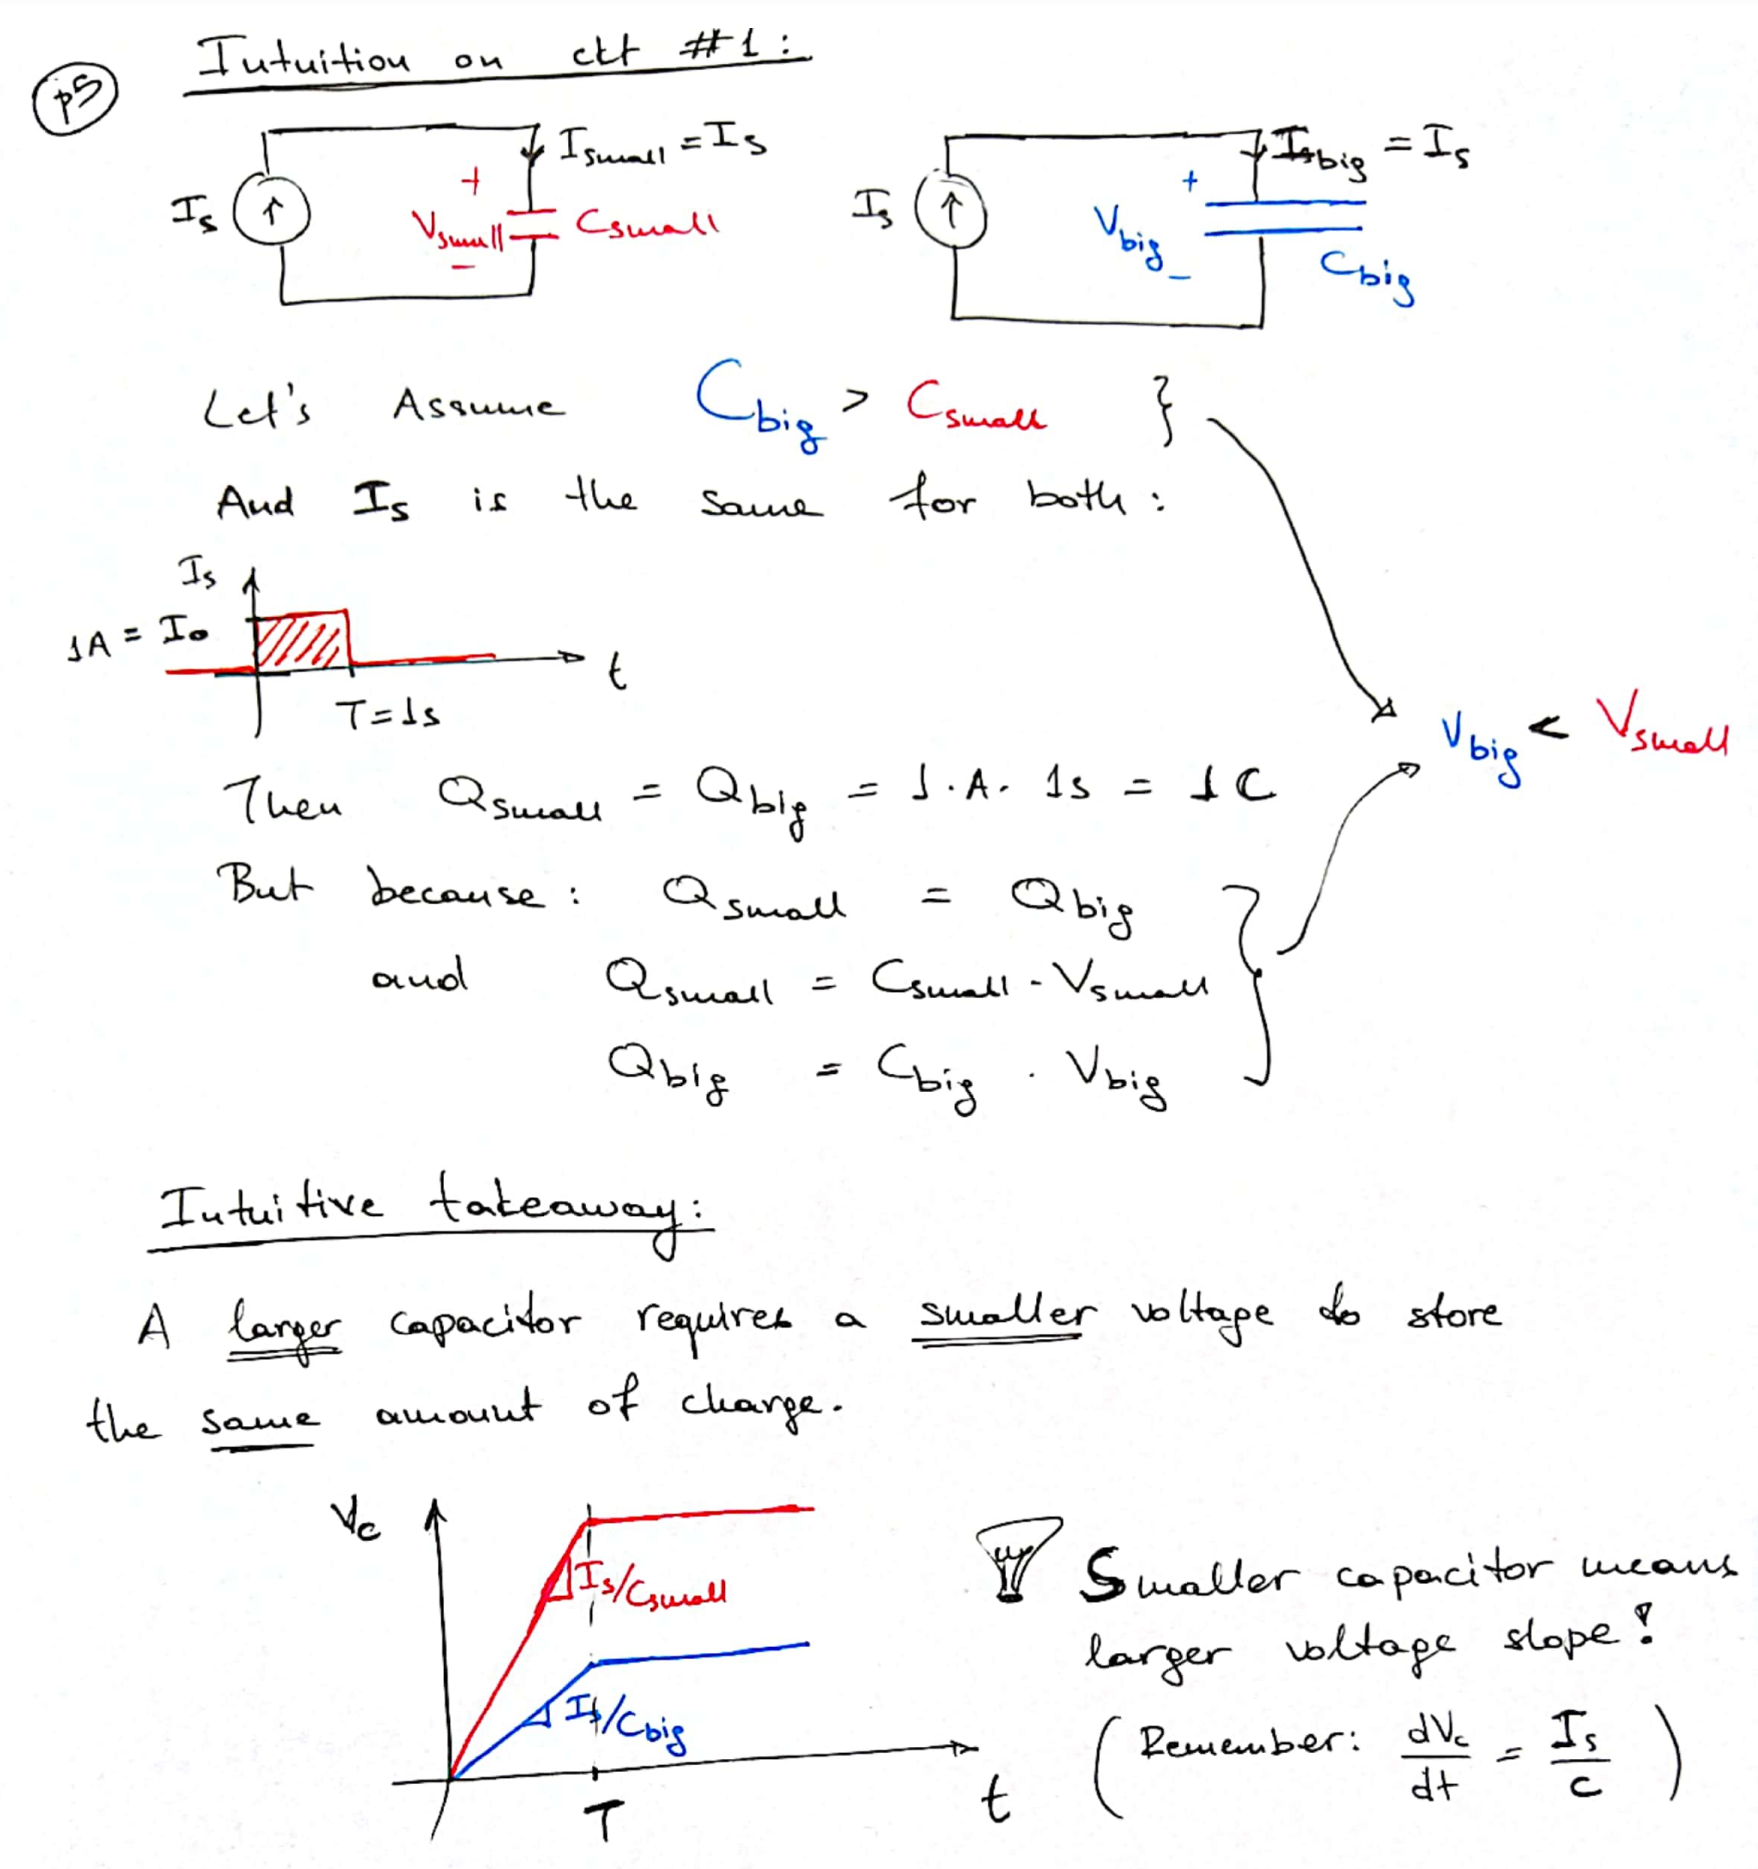 p5
Intuition on ckt #1:
I_small = I_s
I_s
+
V_small
-
C_small
I_big = I_s
I_s
+
V_big
-
C_big
Let's Assume C_big > C_small }
And I_s is the same for both:
I_s
1A = I_0
t
T=1s
V_big < V_small
Then Q_small = Q_big = 1.A. 1s = 1C
But because: Q_small = Q_big
and Q_small = C_small · V_small
Q_big = C_big · V_big
Intuitive takeaway:
A larger capacitor requires a smaller voltage to store
the same amount of charge.
V_c
I_s/C_small
I_s/C_big
t
T
Smaller capacitor means
larger voltage slope!
(Remember: dV_c/dt = I_s/C)